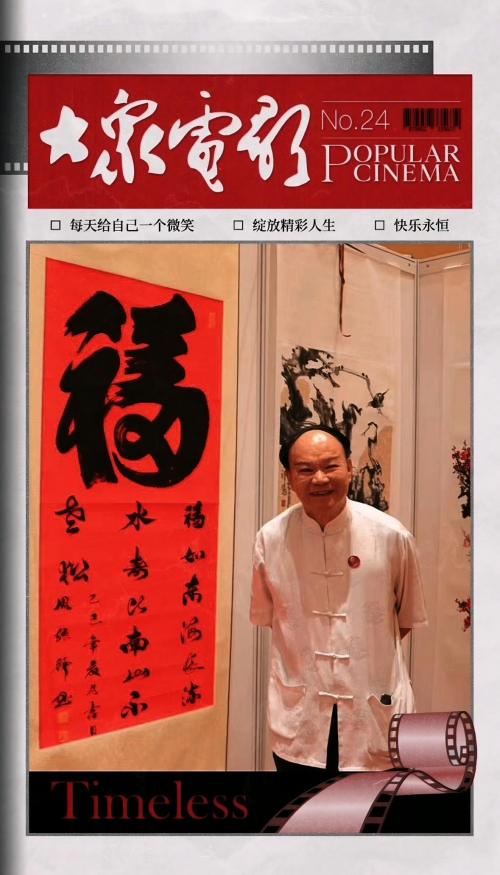 大眾電影
No.24
POPULAR
CINEMA
每天给自己一个微笑 绽放精彩人生 快乐永恒
福
福如东海长流
水寿比南山不
老松
Timeless